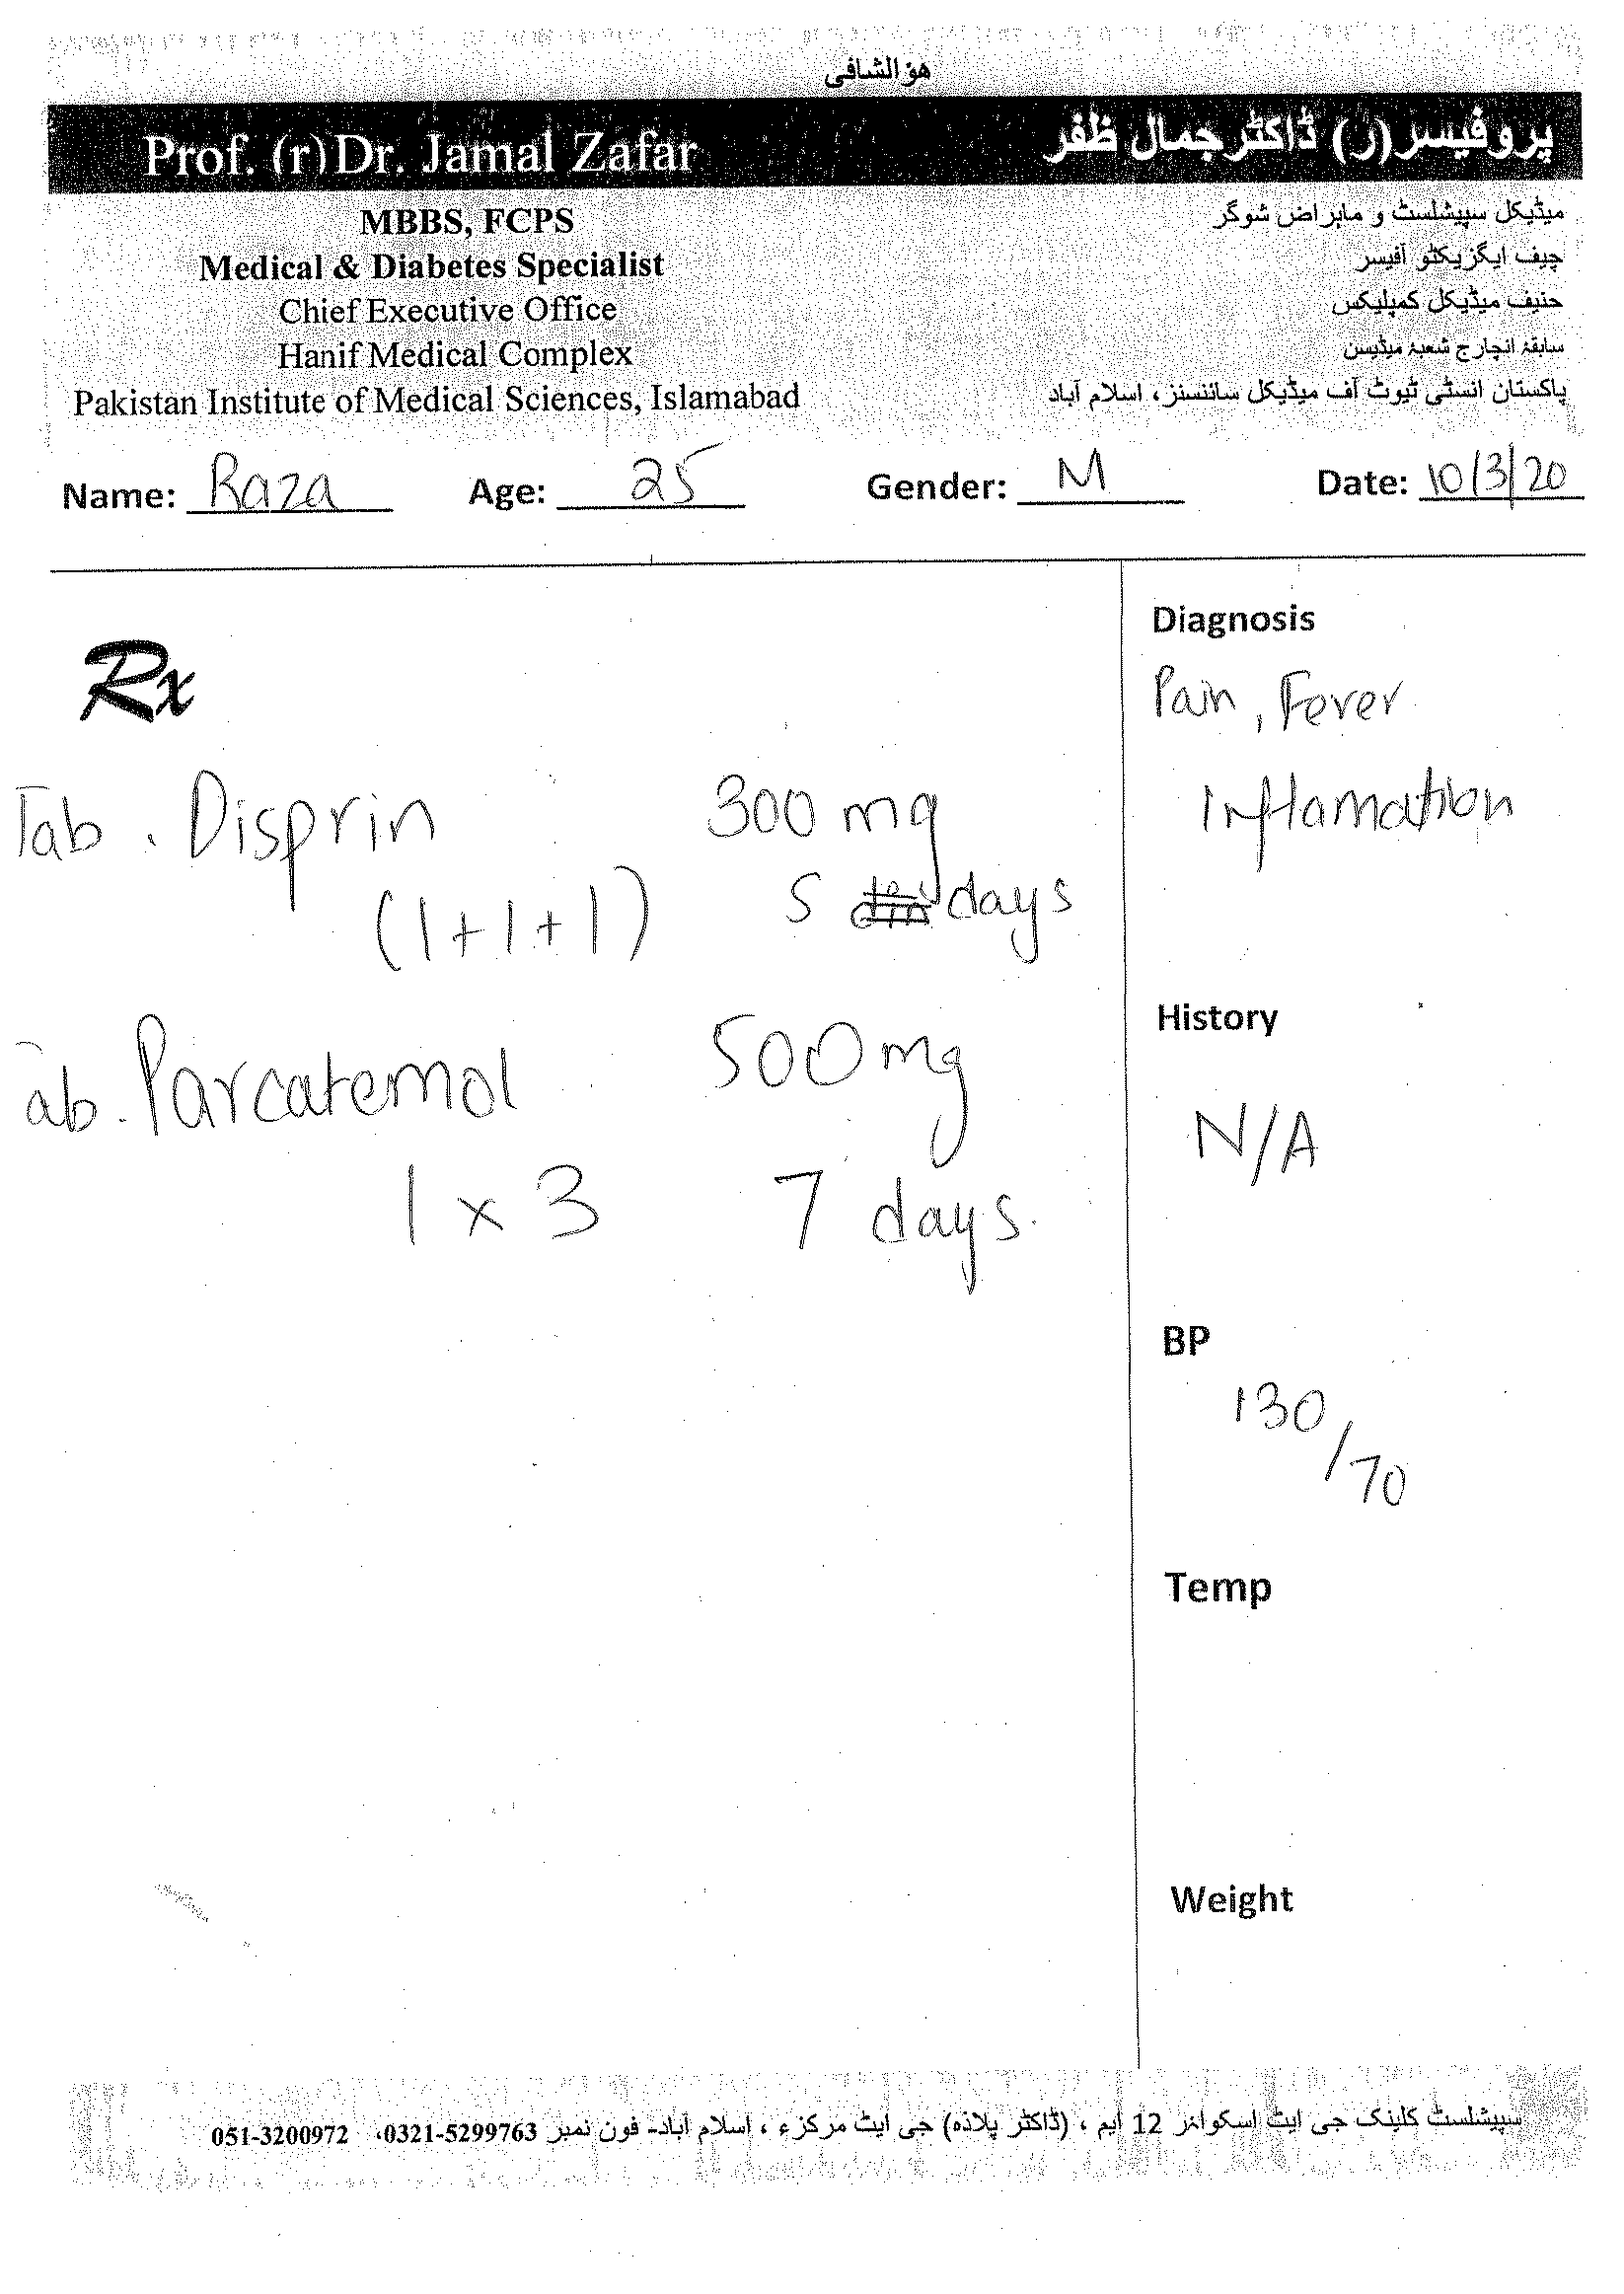 هو الشافی
Prof. (r) Dr. Jamal Zafar
پروفیسر (ر) ڈاکٹر جمال ظفر
MBBS, FCPS
Medical & Diabetes Specialist
Chief Executive Office
Hanif Medical Complex
Pakistan Institute of Medical Sciences, Islamabad
میڈیکل سپیشلسٹ و ماہر اض شوگر
چیف ایگزیکٹو آفیسر
حنیف میڈیکل کمپلیکس
سابقہ انچارج شعبۂ میڈیسن
پاکستان انسٹی ٹیوٹ آف میڈیکل سائنسز، اسلام آباد
Name: Raza Age: 25 Gender: M Date: 10/3/20
Rx
Tab. Disprin 300 mg
(1+1+1) 5 days
Tab. Parcatemol 500 mg
1 x 3 7 days.
Diagnosis
Pain, Fever
Inflamation
History
N/A
BP
130/70
Temp
Weight
سپیشلسٹ کلینک جی ایٹ اسکوائر 12 ایم ، (ڈاکٹر پلازہ) جی ایٹ مرکزء ، اسلام آباد- فون نمبر 0321-5299763، 051-3200972